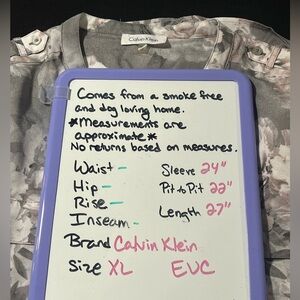 Calvin Klein
Comes from a smoke free
and dog loving home.
*Measurements are
approximate*
No returns based on measures.
Waist -
Hip -
Rise -
Inseam -
Sleeve 24"
Pit to Pit 22"
Length 27"
Brand Calvin Klein
Size XL EUC